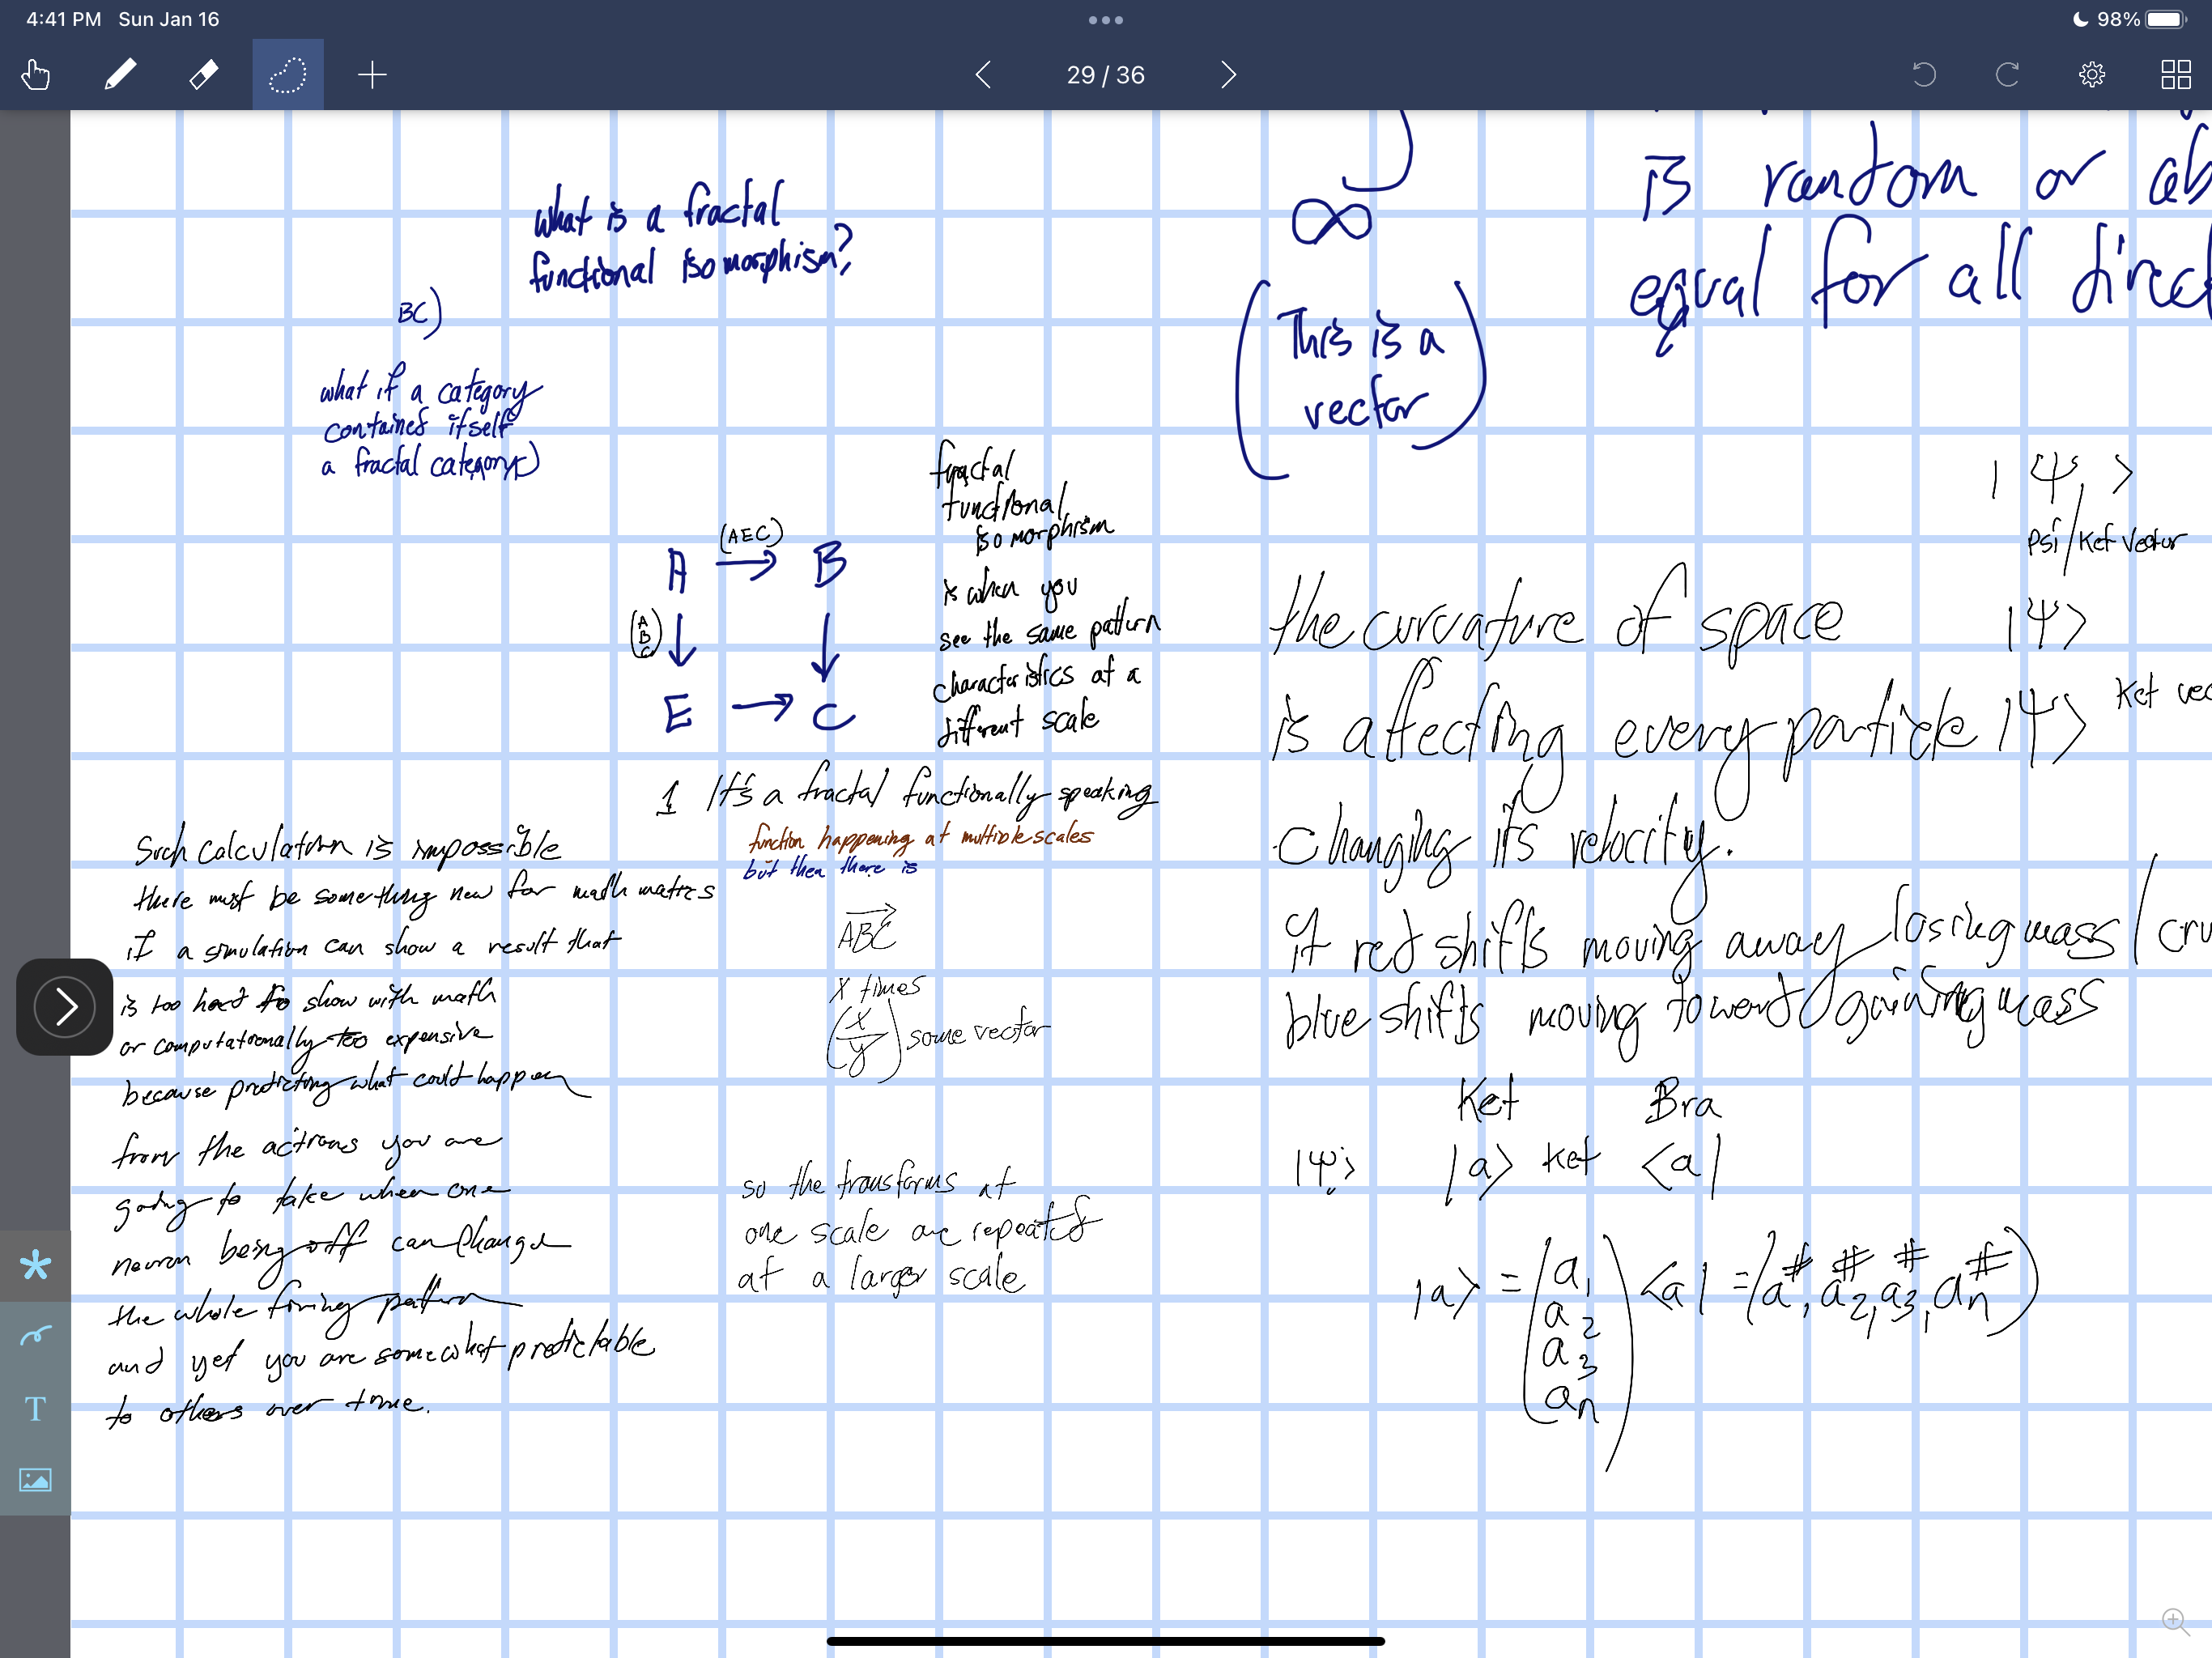 4:41 PM Sun Jan 16
98%
29 / 36
what is a fractal
functional isomorphism?
BC)
what if a category
contained itself
a fractal category)
(AEC)
A → B
(A
B
C)
E → C
fractal
functional
isomorphism
is when you
see the same pattern
characteristics at a
different scale
1 It's a fractal functionally speaking
function happening at multiple scales
but then there is
ABC
X times
(X/y) some vector
so the transforms at
one scale are repeated
at a larger scale
Such calculation is impossible
there must be something new for math matics
if a simulation can show a result that
is too hard to show with math
or computationally too expensive
because predicting what could happen
from the actions you are
going to take when one
neuron being off can change
the whole firing pattern
and yet you are somewhat predictable
to others over time.
∞
(This is a
vector)
is random or
equal for all
|Ψ>
psi/Ket Vector
the curvature of space |Ψ>
is affecting every particle |Ψ> Ket
changing its velocity.
if red shifts moving away losing mass /
blue shifts moving toward / gaining mass
Ket Bra
|Ψ> |a> ket <a|
|a> = (a1
a2
a3
an)
<a| = (a#, a2#, a3#, an#)
T